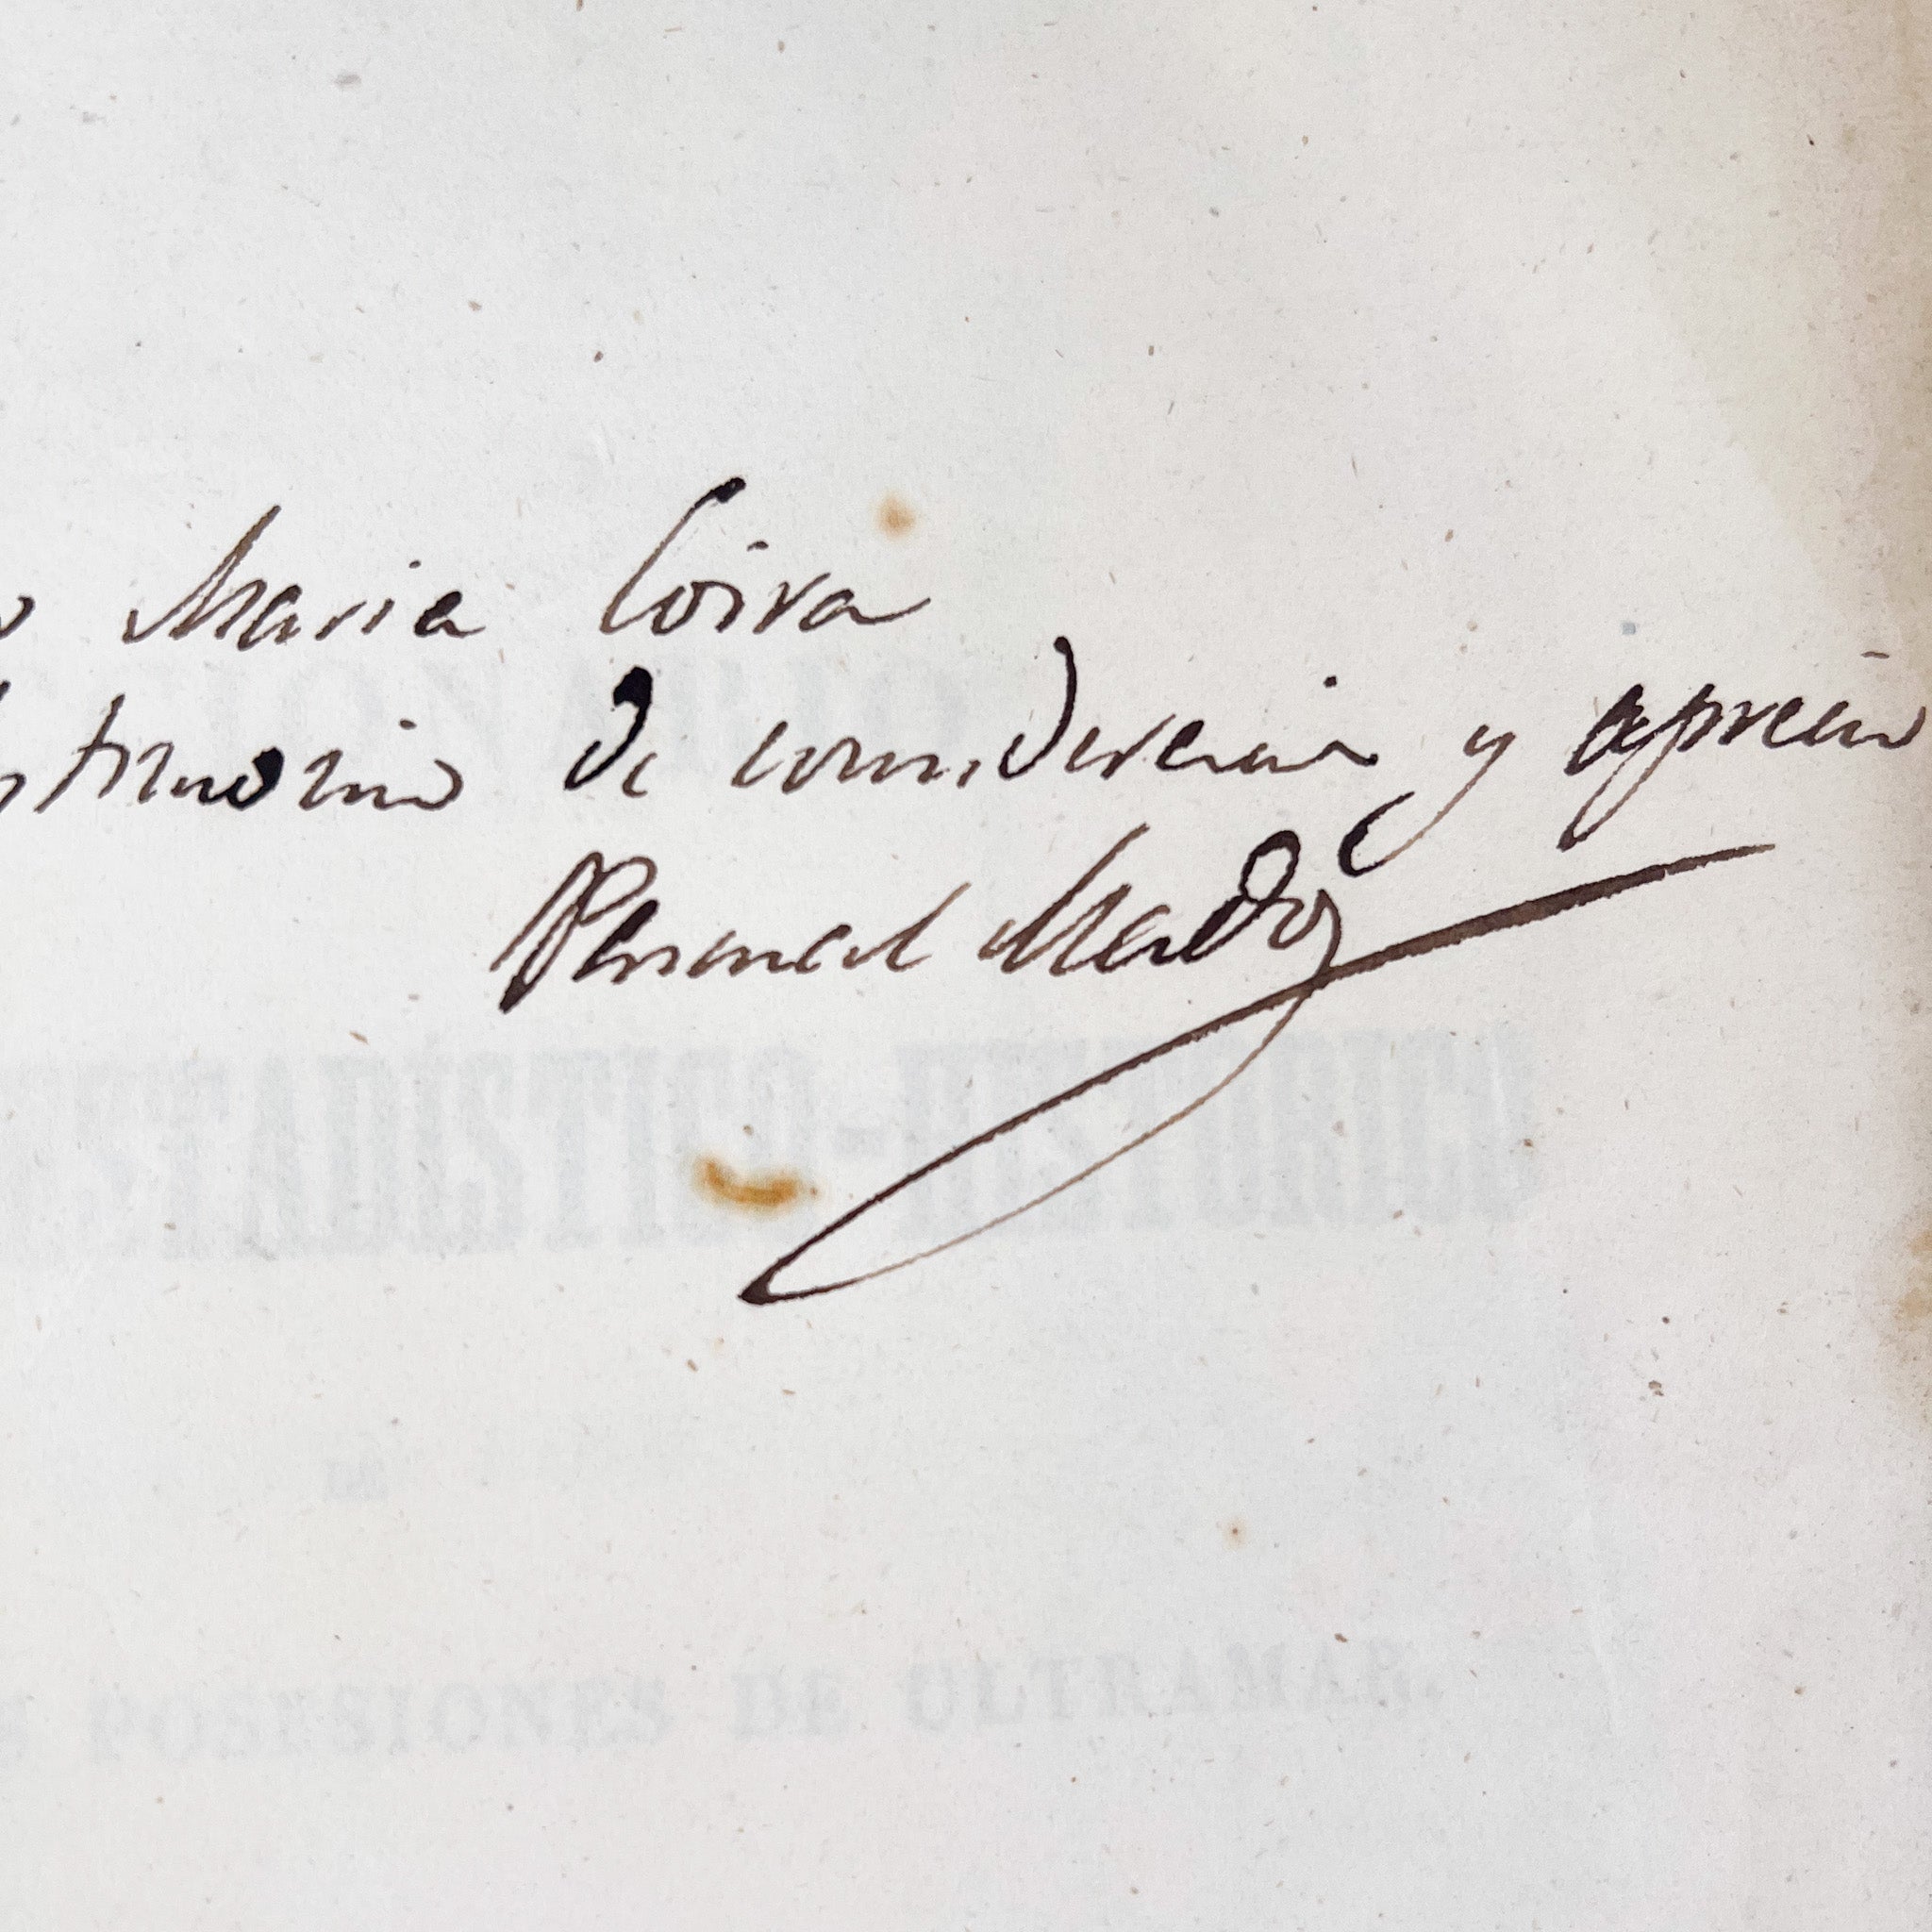 Maria Coira
testimonio de consideracion y aprecio
Pascual Madoz
ESTADÍSTICO-HISTÓRICO
POSESIONES DE ULTRAMAR.